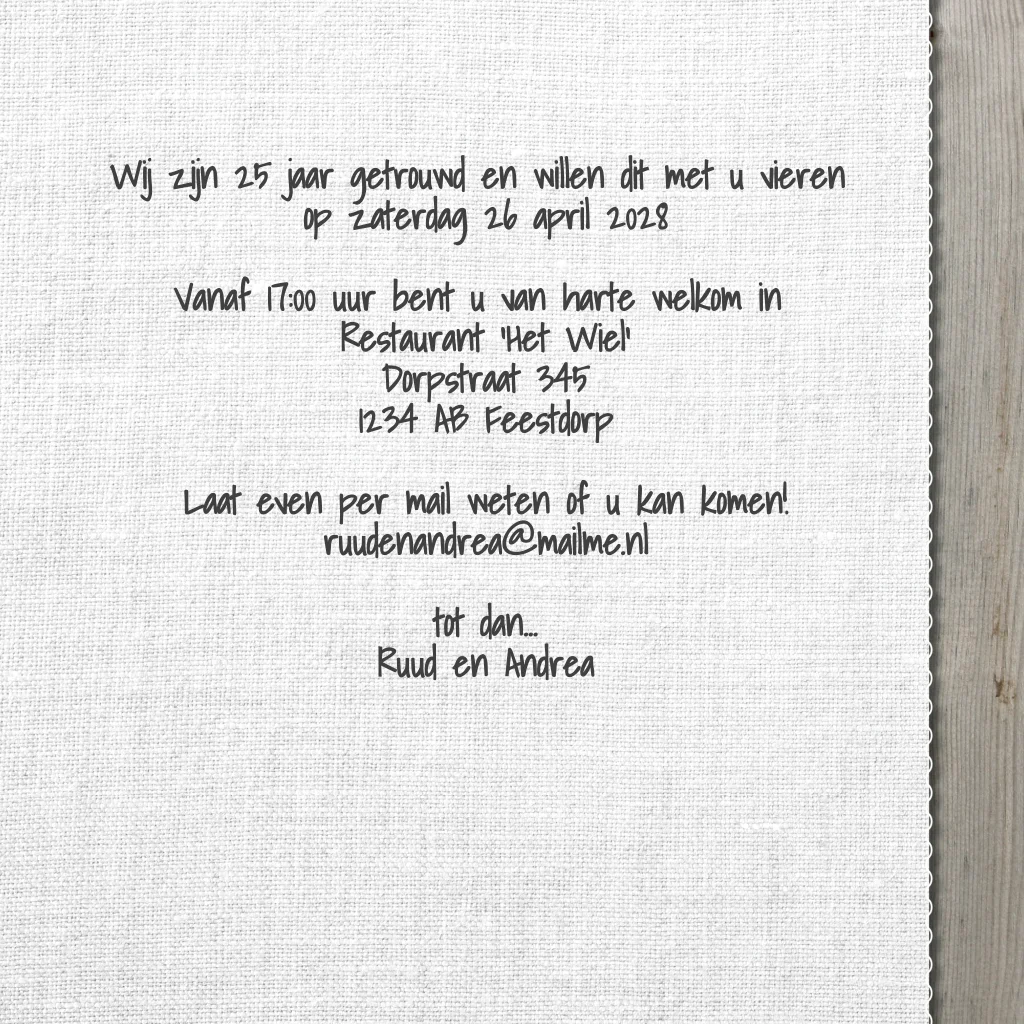 Wij zijn 25 jaar getrouwd en willen dit met u vieren
op zaterdag 26 april 2028
Vanaf 17:00 uur bent u van harte welkom in
Restaurant 'Het Wiel'
Dorpstraat 345
1234 AB Feestdorp
Laat even per mail weten of u kan komen!
ruudenandrea@mailme.nl
tot dan...
Ruud en Andrea